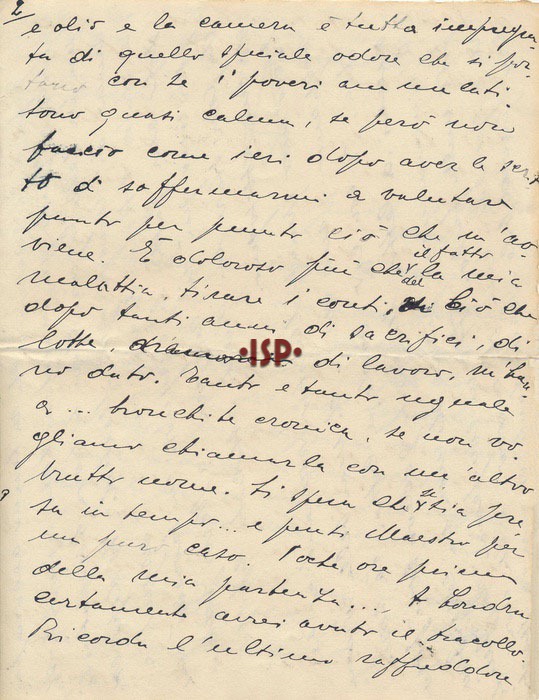 2
e olio e la camera è tutta impregna-
ta di quello speciale odore che si por-
tano con se i poveri ammalati.
Sono quasi calma, se però non
faccio come ieri dopo aver la scrit
to di soffermarmi a valutare
punto per punto ciò che m'av-
viene. È doloroso più che il fatto la mia
malattia, tirare i conti, del ciò che
dopo tanti anni di sacrifici, di
lotte, di lavoro, m'han-
no dato. Tanto e tanto uguale
a... bronchite cronica, se non vo-
gliamo chiamarla con un'altro
brutto nome. Si spera che si stia pre
sa in tempo... e pensi Maestro per
un puro caso. Poche ore prima
della mia partenza... A Londra
certamente avrei avuto il tracollo.
Ricorda l'ultimo raffreddore
•ISP•